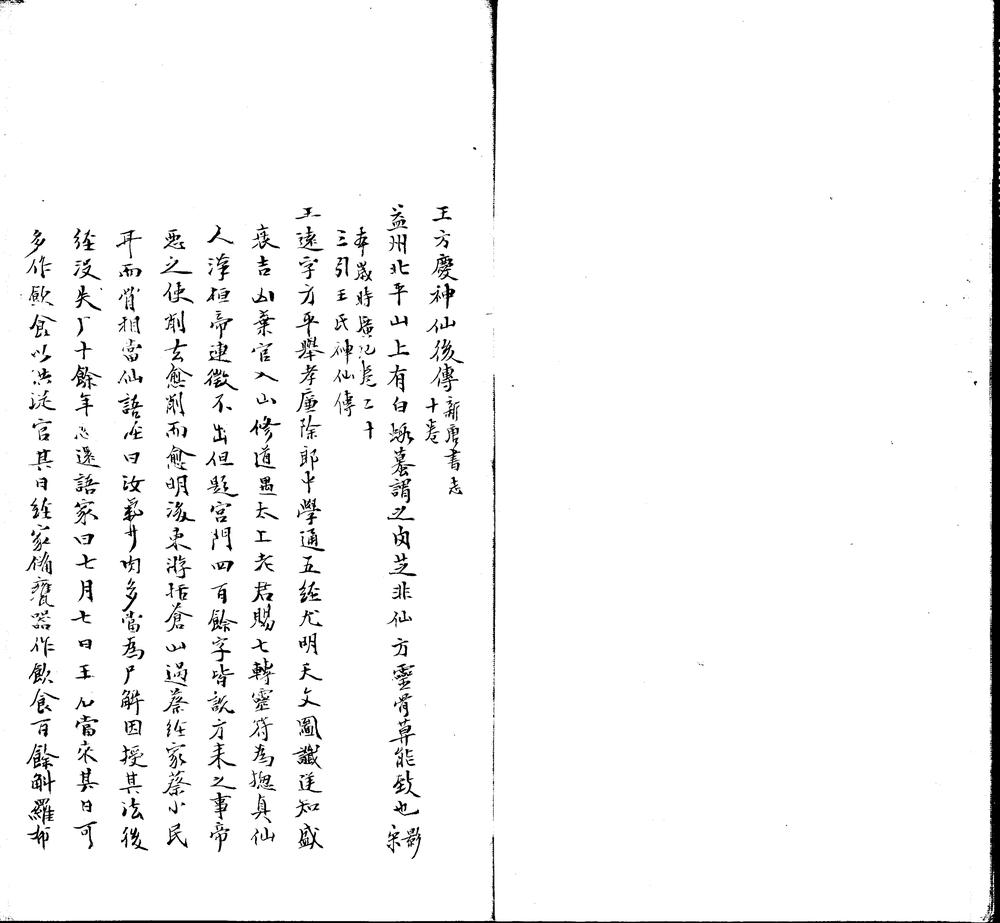 王方慶神仙後傳新唐書志十卷
益州北平山上有白蝦蟇謂之肉芝非仙方靈骨草能致也影宋
本歲時廣記卷二十
三引王氏神仙傳
王遠字方平舉孝廉除郎中學通五經尤明天文圖讖逆知盛
衰吉凶棄官入山修道遇太上老君賜七轉靈符為揔真仙
人漢桓帝連徵不出但題宮門四百餘字皆說方來之事帝
惡之使削去愈削而愈明後東游括蒼山過蔡經家蔡小民
耳而骨相當仙語經曰汝氣少肉多當為尸解因授其法後
經没失十餘年忽還語家曰七月七日王九當來其日可
多作飲食以供從官其日經家備甕器作飲食百餘斛羅布